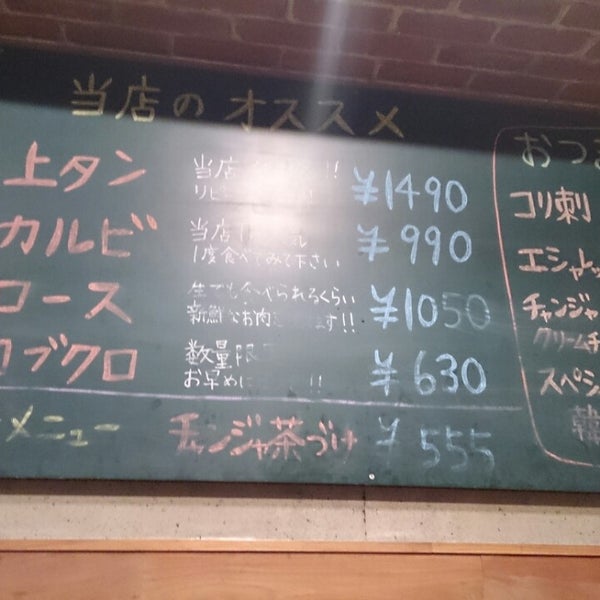 当店のオススメ
上タン
当店 !!
¥1490
カルビ
当店
1度食べてみて下さい
¥990
ロース
生でも食べられるくらい
新鮮なお肉 ます!!
¥1050
コブクロ
数量限
お早めに !!
¥630
メニュー
チャンジャ茶づけ
¥555
おつ
コリ刺
エシャレッ
チャンジャ
クリームチ
スペシ
韓